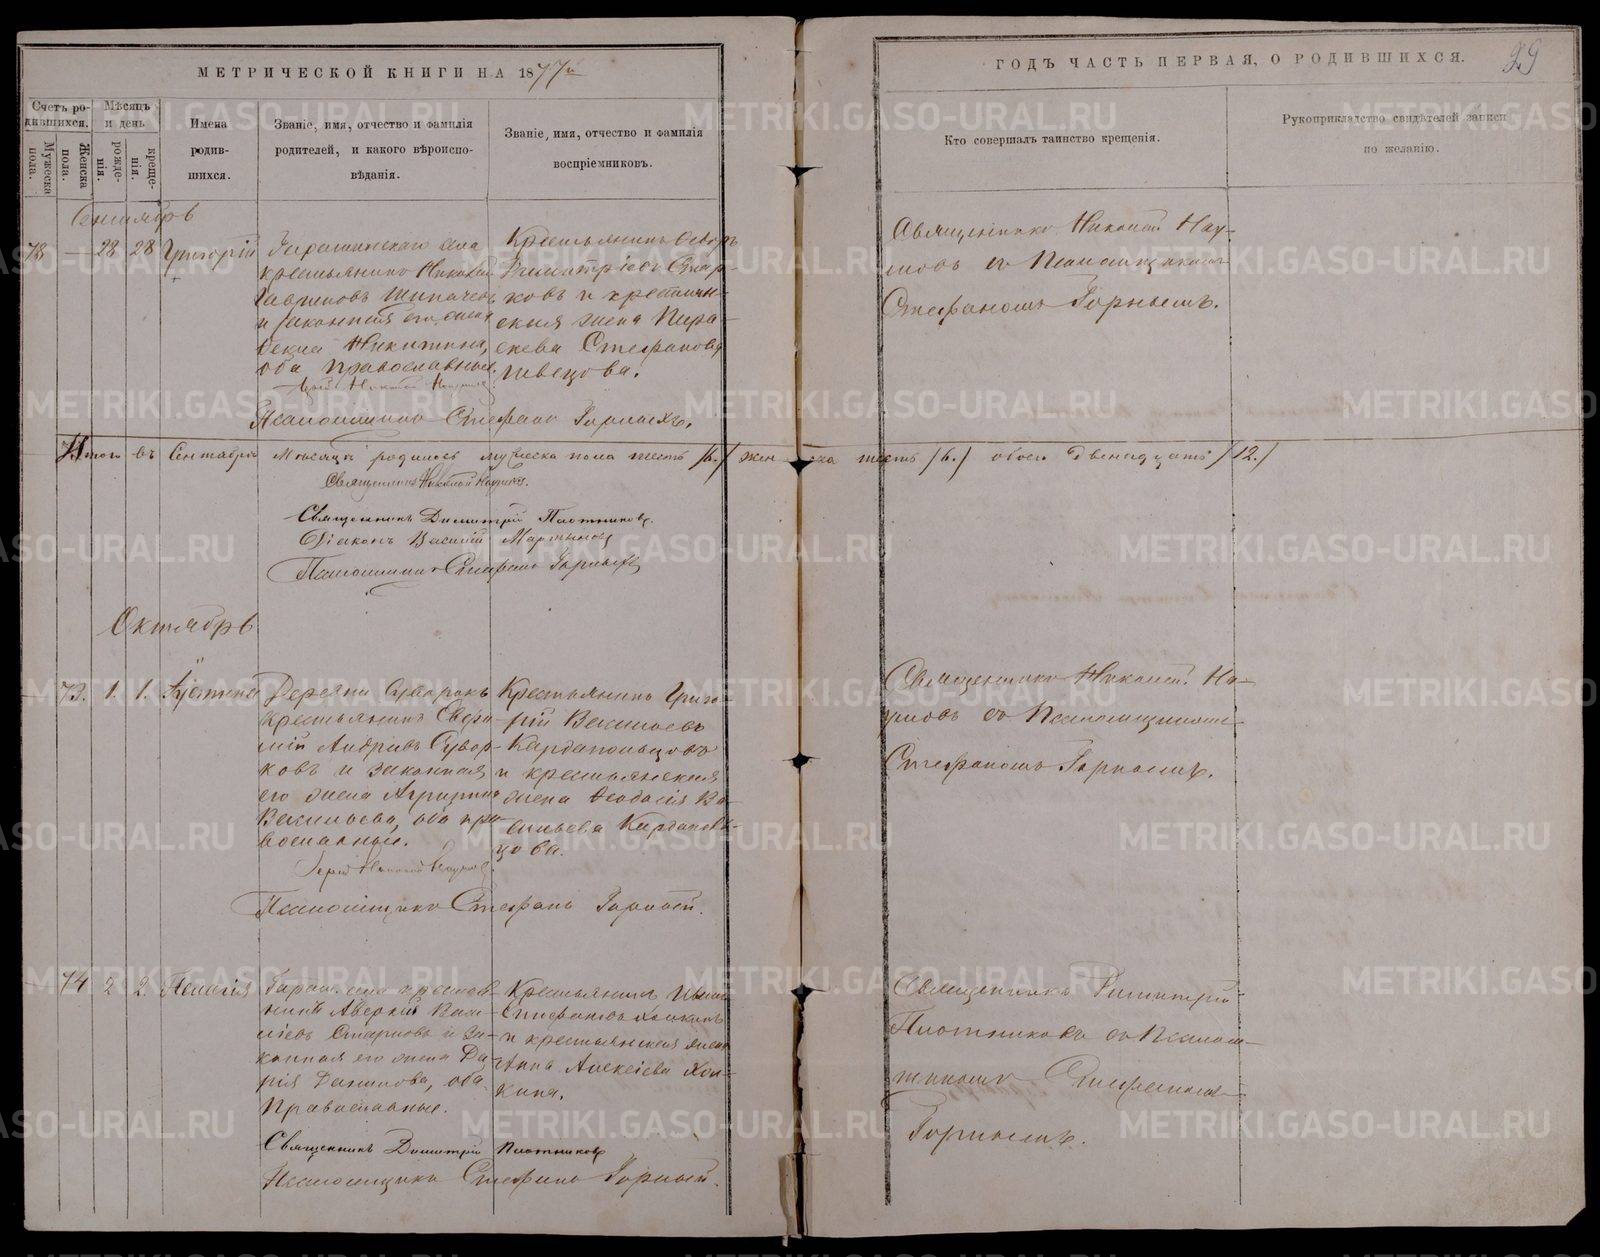 МЕТРИЧЕСКОЙ КНИГИ НА 1877й
ГОДЪ ЧАСТЬ ПЕРВАЯ, О РОДИВШИХСЯ.
29
Счетъ ро-
дившихся.
Мужеска
пола.
Женска
пола.
Мѣсяцъ
и день
рожде-
нія.
креще-
нія.
Имена
родив-
шихся.
Званіе, имя, отчество и фамилія
родителей, и какого вѣроиспо-
вѣданія.
Званіе, имя, отчество и фамилія
воспріемниковъ.
Кто совершалъ таинство крещенія.
Рукоприкладство свидѣтелей записи
по желанію.
Сентябрь
78 — 28 28 Григорій
села
крестьянинъ Николай
Гавриловъ
и законная его жена
Никитина,
оба православные.
Крестьянинъ
Димитріевъ Стар-
ковъ и крестьян-
ская жена Пара-
скева Стефанова
Швецова.
Псаломщикъ Стефанъ Горныхъ.
Священникъ Николай Нау-
мовъ съ Псаломщикомъ
Стефаномъ Горнымъ.
Итого въ Сентябрѣ мѣсяцѣ родилось мужеска пола шесть /6./ женска шесть /6./ обоего двенадцать /12./
Священникъ Николай Наумовъ.
Священникъ Димитрій Плотниковъ.
Діаконъ Василій Мартыновъ
Псаломщикъ Стефанъ Горныхъ
Октябрь
73. 1. 1. Іустина
Деревни
крестьянинъ
и законная
его жена Агрипина
Васильева, оба пра-
вославные.
Крестьянинъ Григо-
рій Васильевъ
Кардапольцовъ
и крестьянская
жена Феодосія Ва-
сильева Кардаполь-
цова.
Іерей Николай Наумовъ.
Псаломщикъ Стефанъ Горный.
Священникъ Николай На-
умовъ съ Псаломщикомъ
Стефаномъ Горнымъ.
74 2 2. Пелагія
села крестья-
нинъ Аверкій Васи-
ліевъ Старковъ и за-
конная его жена Да-
рія Данилова, оба
Православные.
Крестьянинъ
Стефановъ
и крестьянская жена
Анна Алексіева
Священникъ Димитрій Плотниковъ
Псаломщикъ Стефанъ Горный.
Священникъ Димитрій
Плотниковъ съ Псалом-
щикомъ Стефаномъ
Горнымъ.
METRIKI.GASO-URAL.RU